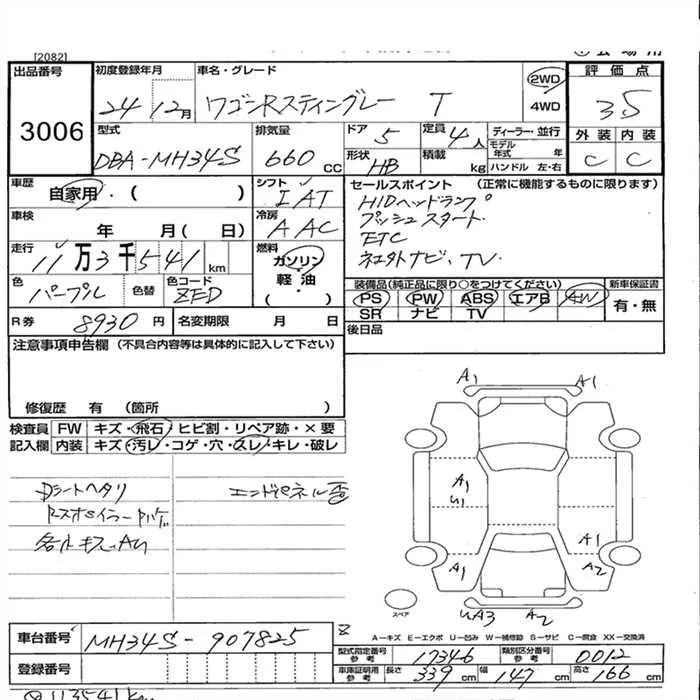 [2082]
出品番号 初度登録年月 車名・グレード 評価点
3006
24 12月 ワゴンRスティングレー T 2WD 4WD 3.5
型式 排気量 ドア 定員 ディーラー・並行 外装 内装
DBA-MH34S 660 CC 5 4人 モデル年式 年 C C
形状 HB 積載 kg ハンドル 左・右
車歴 自家用・( ) シフト IAT
セールスポイント (正常に機能するものに限ります)
HIDヘッドランプ
プッシュスタート
ETC
社外ナビ、TV
車検 年 月( 日) 冷房 AAC
走行 11万3千541km 燃料 ガソリン 軽油 ( )
色 パープル 色替 色コード ZED
装備品(純正品に限り○をつけてください) 新車保証書
PS PW ABS エアB AW 有・無
SR ナビ TV
R券 8930円 名変期限 月 日
後日品
注意事項申告欄 (不具合内容等は具体的に記入して下さい)
修復歴 有 (箇所 )
検査員 FW キズ・飛石・ヒビ割・リペア跡・×要
記入欄 内装 キズ・汚レ・コゲ・穴・スレ・キレ・破レ
Dシートヘタリ
エンドパネル歪
各小キズ、AU
A1 A1
A1
U1
A1 A1
A2
UA3 A2
スペア
A−キズ E−エクボ U−凹み W−補修跡 S−サビ C−腐食 XX−交換済
車台番号 MH34S-907825
登録番号
型式指定番号 参考 17346 類別区分番号 参考 0012
車庫証明用 参考 長さ 339cm 幅 147cm 高さ 166cm
113541km